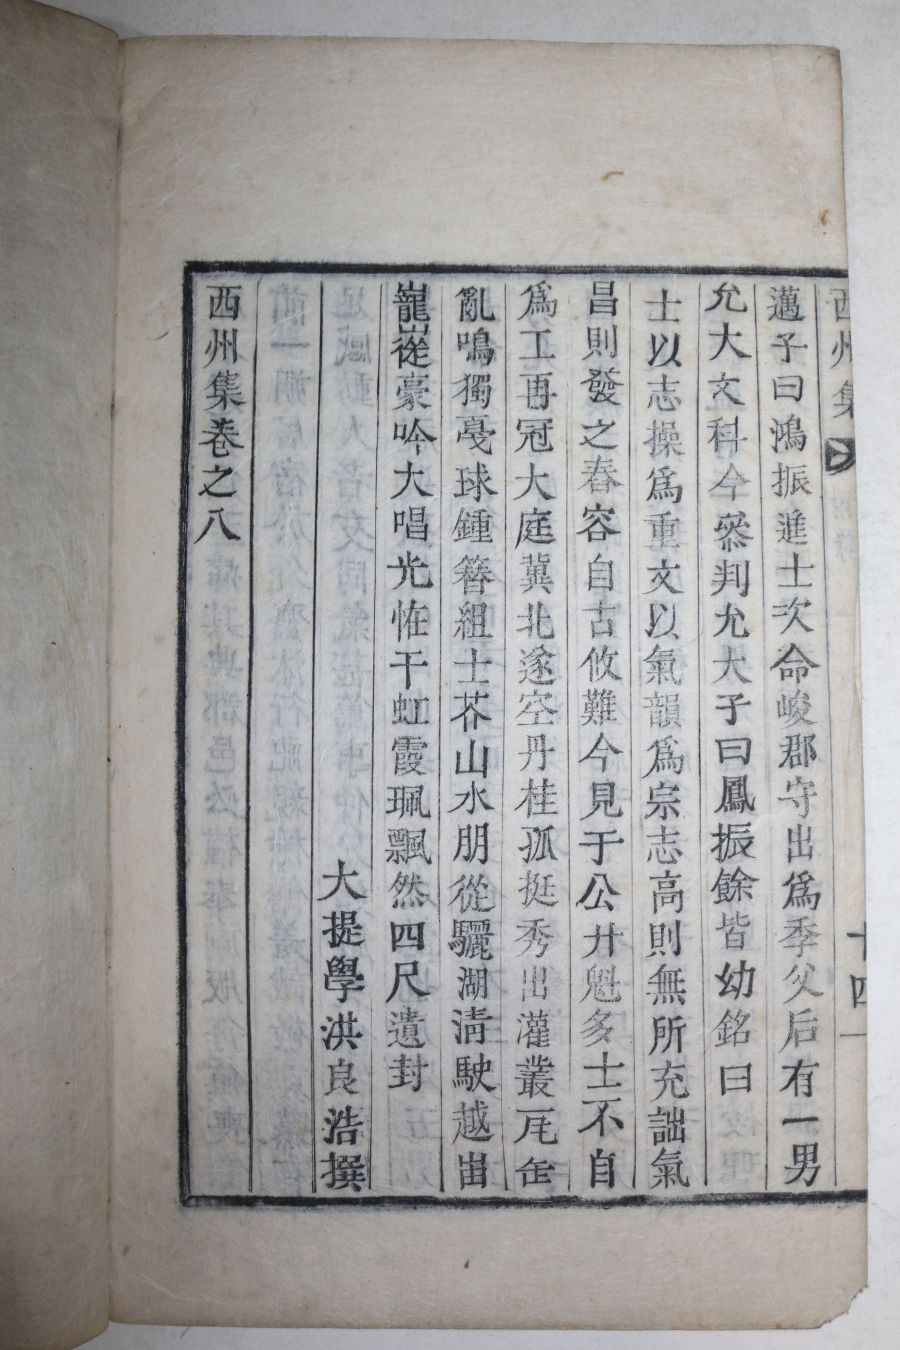 西州集
十四
邁子曰鴻振進士次命峻郡守出爲季父后有一男
允大文科今叅判允大子曰鳳振餘皆幼銘曰
士以志操爲重文以氣韻爲宗志高則無所充詘氣
昌則發之舂容自古攸難今見于公廾魁多士不自
爲工再冠大庭冀北遂空丹桂孤挺秀出灌叢瓦缶
亂鳴獨戞球鍾簪組土芥山水朋從驪湖淸駛越出
巃嵸豪吟大唱光怪干虹霞珮飄然四尺遺封
大提學洪良浩撰
西州集卷之八